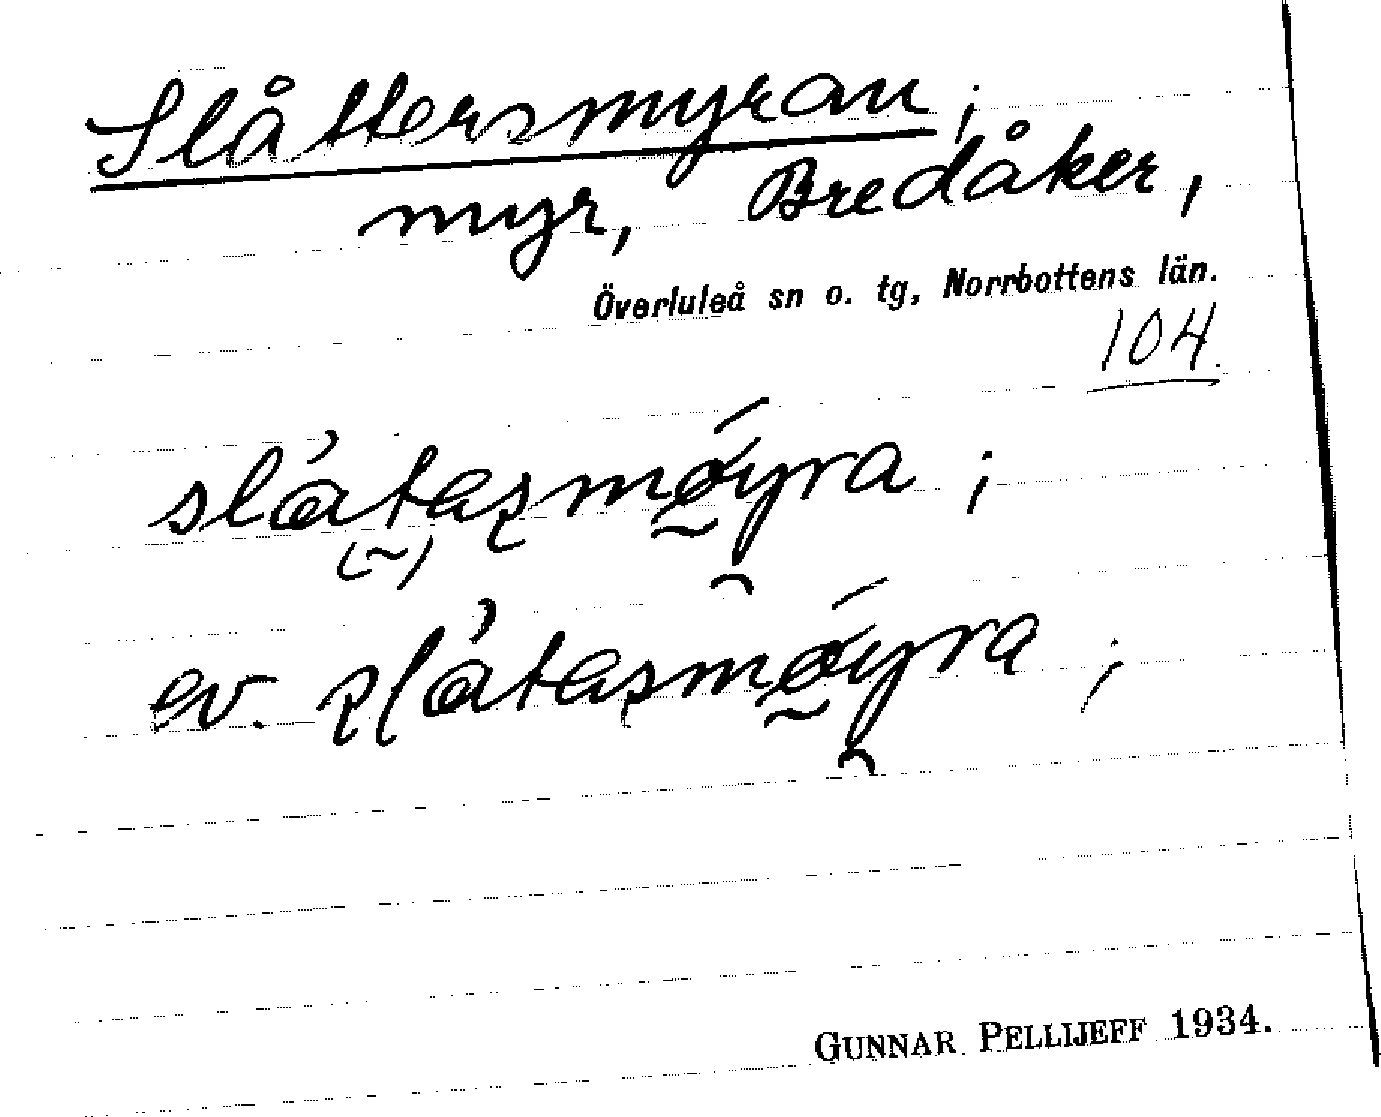 Slåttersmyran;
myr, Bredåker,
Överluleå sn o. tg, Norrbottens län.
104.
slåtasmøyra;
ev. slåtasmøyra;
GUNNAR PELLIJEFF 1934.